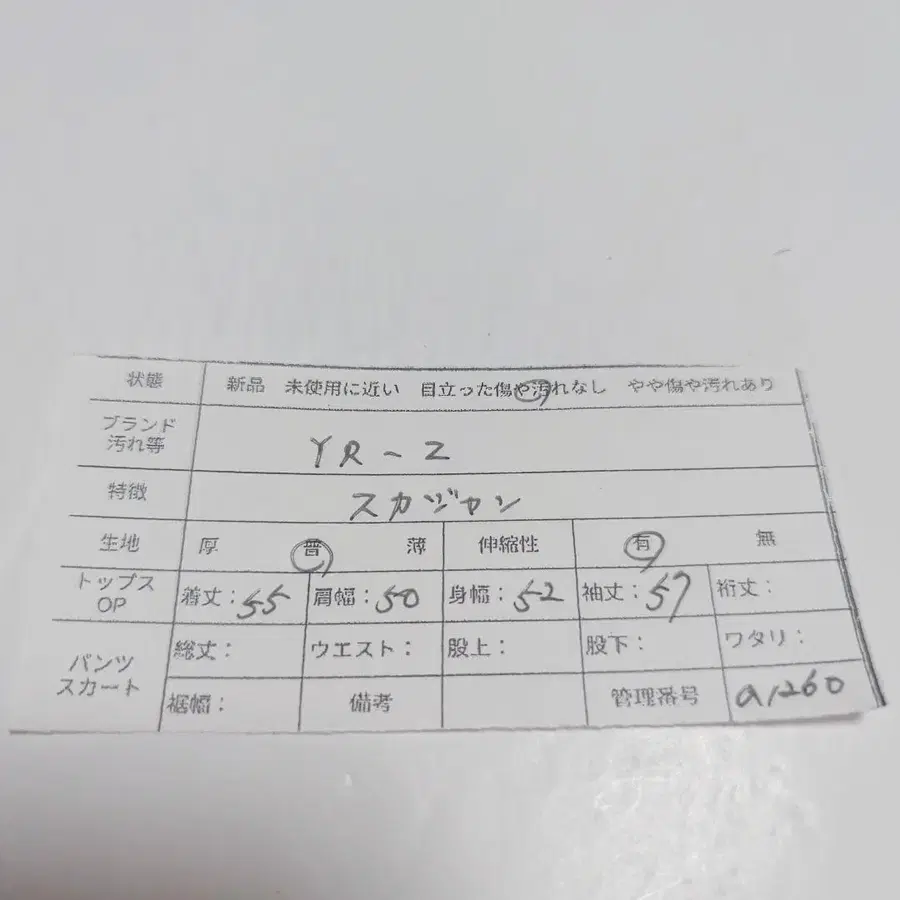 状態 新品 未使用に近い 目立った傷や汚れなし やや傷や汚れあり
ブランド
汚れ等
YR-Z
特徴 スカジャン
生地 厚 普 薄 伸縮性 有 無
トップス
OP
着丈:55 肩幅:50 身幅:52 袖丈:57 裄丈:
パンツ
スカート
総丈: ウエスト: 股上: 股下: ワタリ:
裾幅: 備考 管理番号 a1260